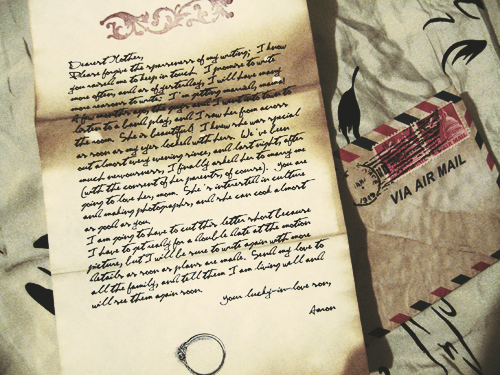 Dearest Mother,
Please forgive the sparseness of my writing; I know
you raised me to keep in touch. I promise to write
more often, and as of yesterday, I will have many
more reasons to write. I'm getting married, mama!
A few months ago the guys and I went into town to
listen to a band play, and I saw her from across
the room. She is beautiful! I knew she was special
as soon as my eyes locked with hers. We've been
out almost every evening since, and last night, after
much nervousness, I finally asked her to marry me
(with the consent of her parents, of course). You are
going to love her, mom. She's interested in culture
and making photographs, and she can cook almost
as good as you.
I am going to have to cut this letter short because
I have to get ready for a double date at the motion
picture, but I will be sure to write again with more
details as soon as plans are made. Send my love to
all the family, and tell them I am living well and
will see them again soon.
Your lucky-in-love son,
Aaron
VIA AIR MAIL